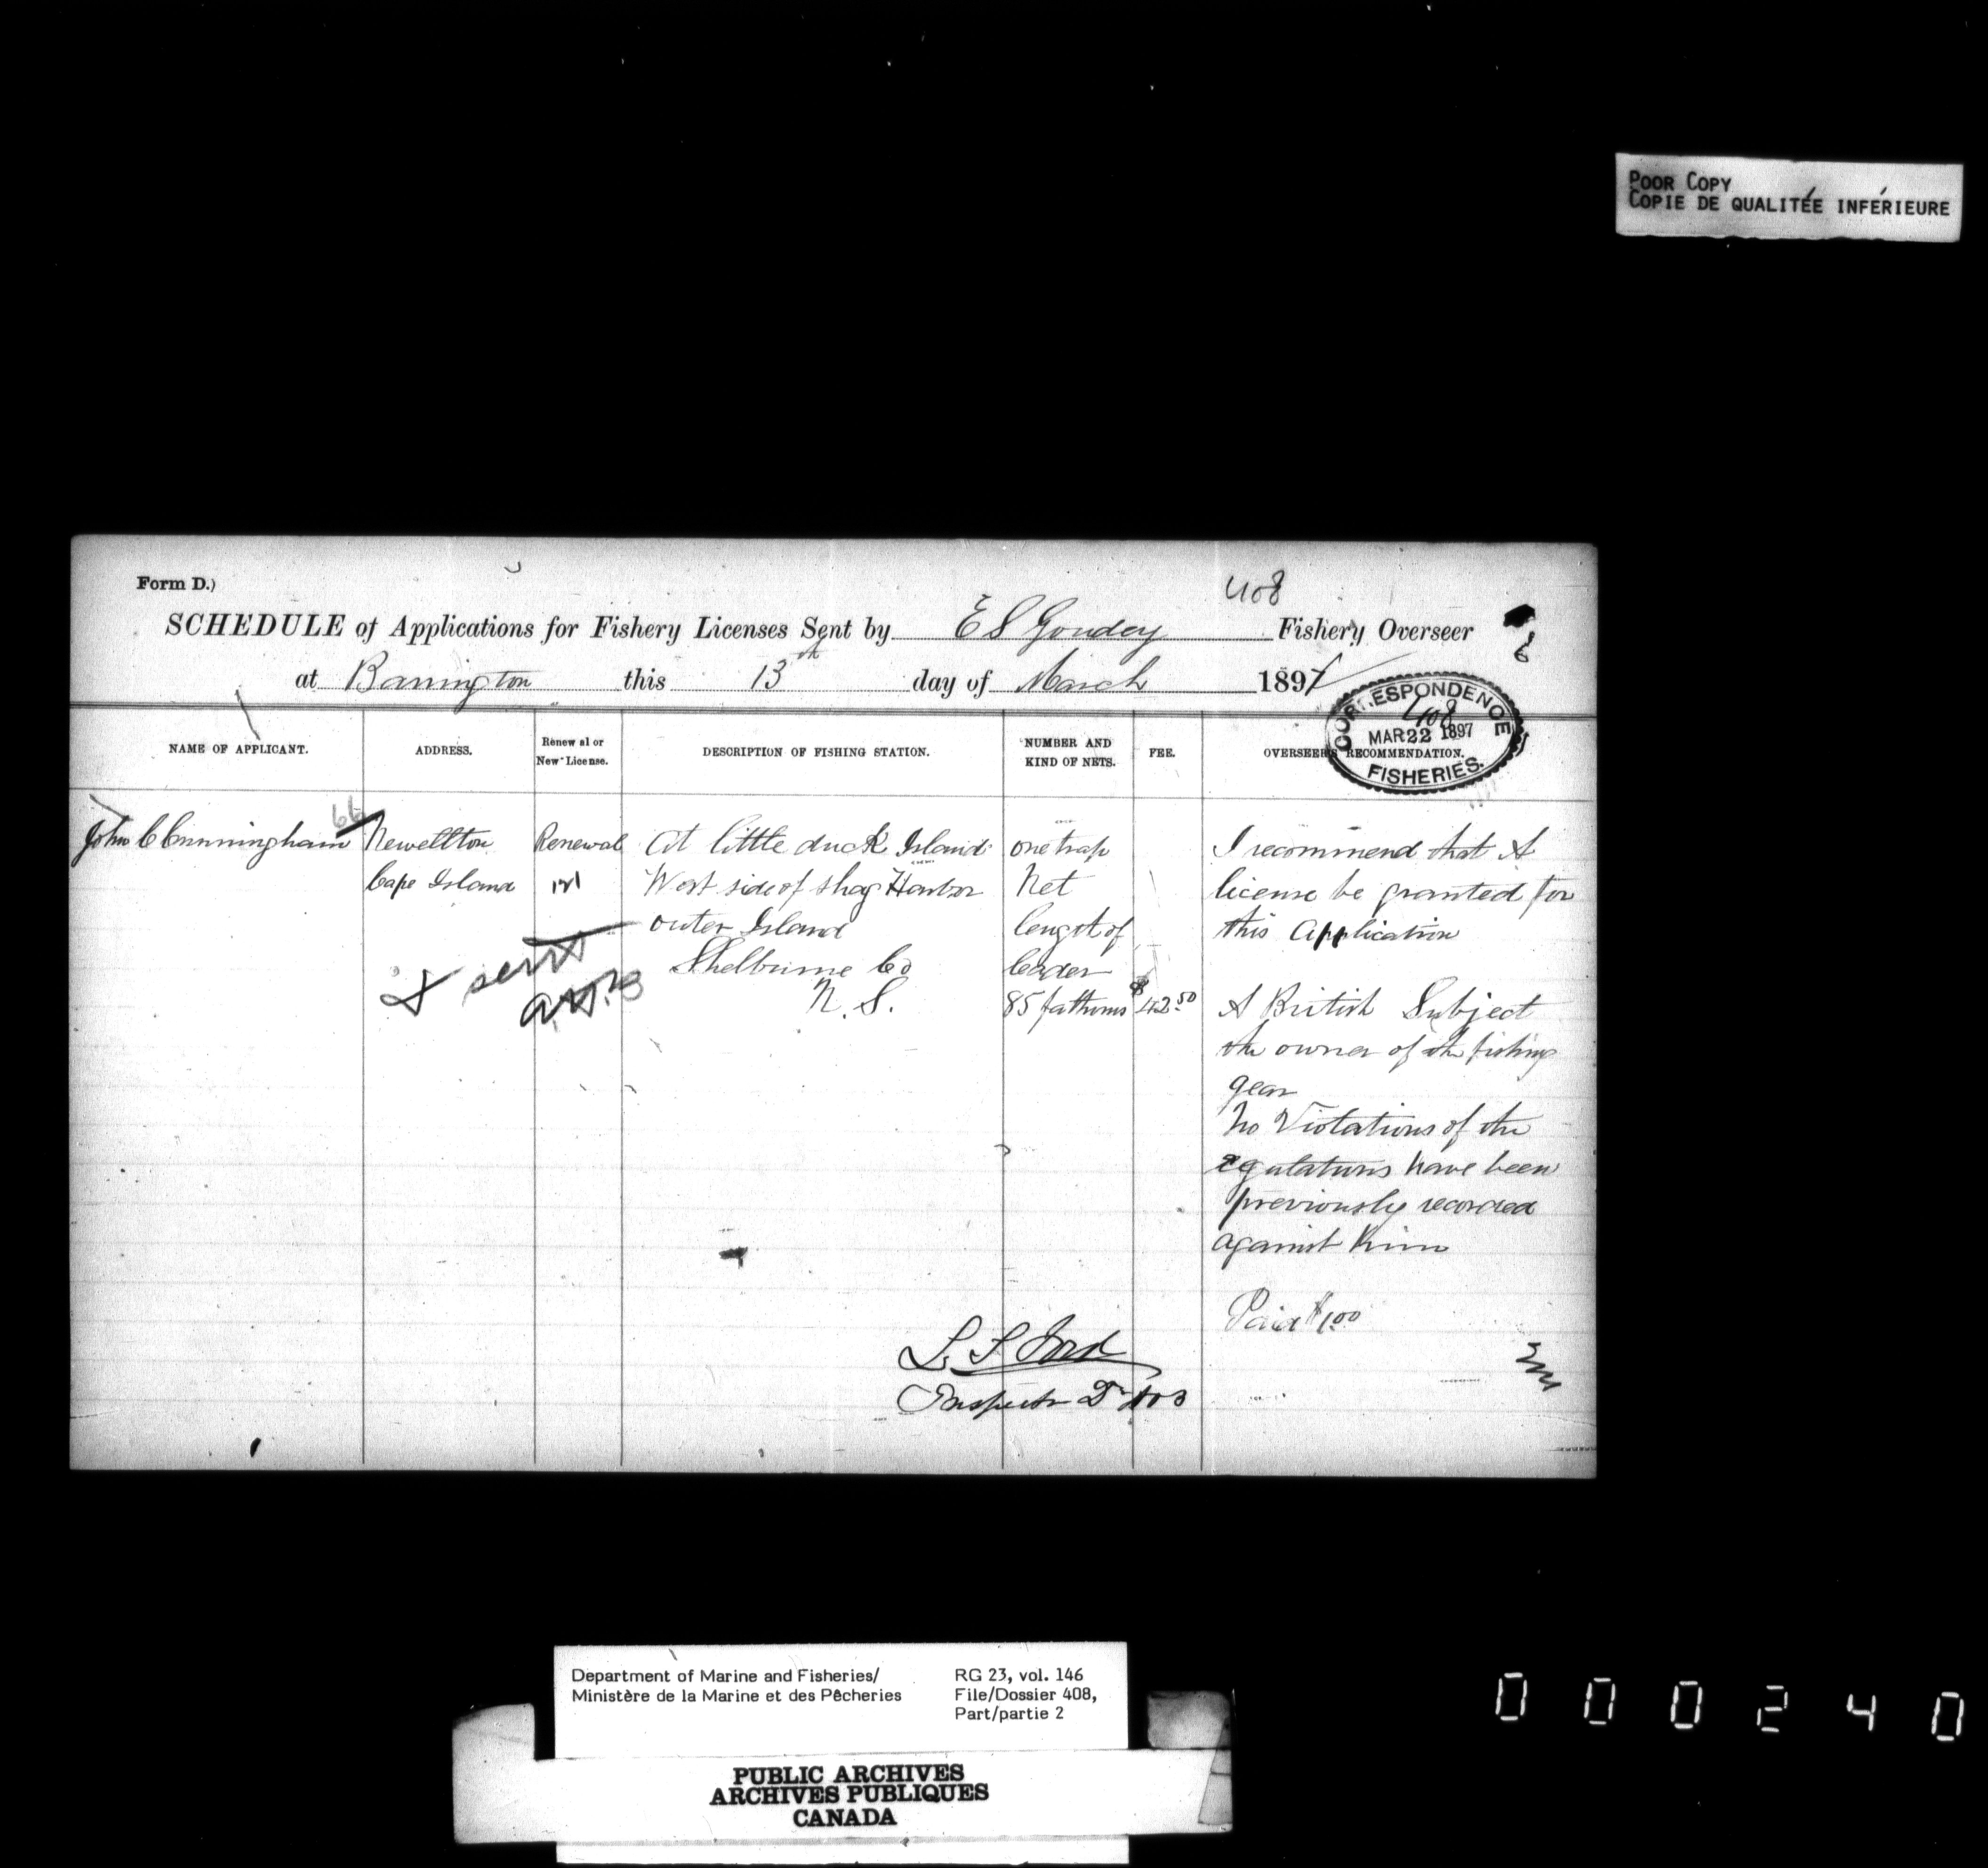 POOR COPY
COPIE DE QUALITÉE INFÉRIEURE
Form D.)
408
SCHEDULE of Applications for Fishery Licenses Sent by E S Goudey Fishery Overseer
at Barrington this 13th day of March 1897
CORRESPONDENCE
408
MAR 22 1897
FISHERIES.
NAME OF APPLICANT.
ADDRESS.
Renewal or
New License.
DESCRIPTION OF FISHING STATION.
NUMBER AND
KIND OF NETS.
FEE.
OVERSEER'S RECOMMENDATION.
66
John C Cunningham
Newellton
Cape Island
Renewal
At little duck Island
West side of Shag Harbor
outer Island
Shelburne Co
N. S.
one trap
Net
lengt of
leader
85 fathoms
$42.50
I recommend that A
license be granted for
this Application
A British Subject
the owner of the fishing
gear
No Violations of the
regulations have been
previously recorded
against him
Paid $1.00
sent
L. S. Ford
Inspector
Department of Marine and Fisheries/
Ministère de la Marine et des Pêcheries
RG 23, vol. 146
File/Dossier 408,
Part/partie 2
PUBLIC ARCHIVES
ARCHIVES PUBLIQUES
CANADA
000240